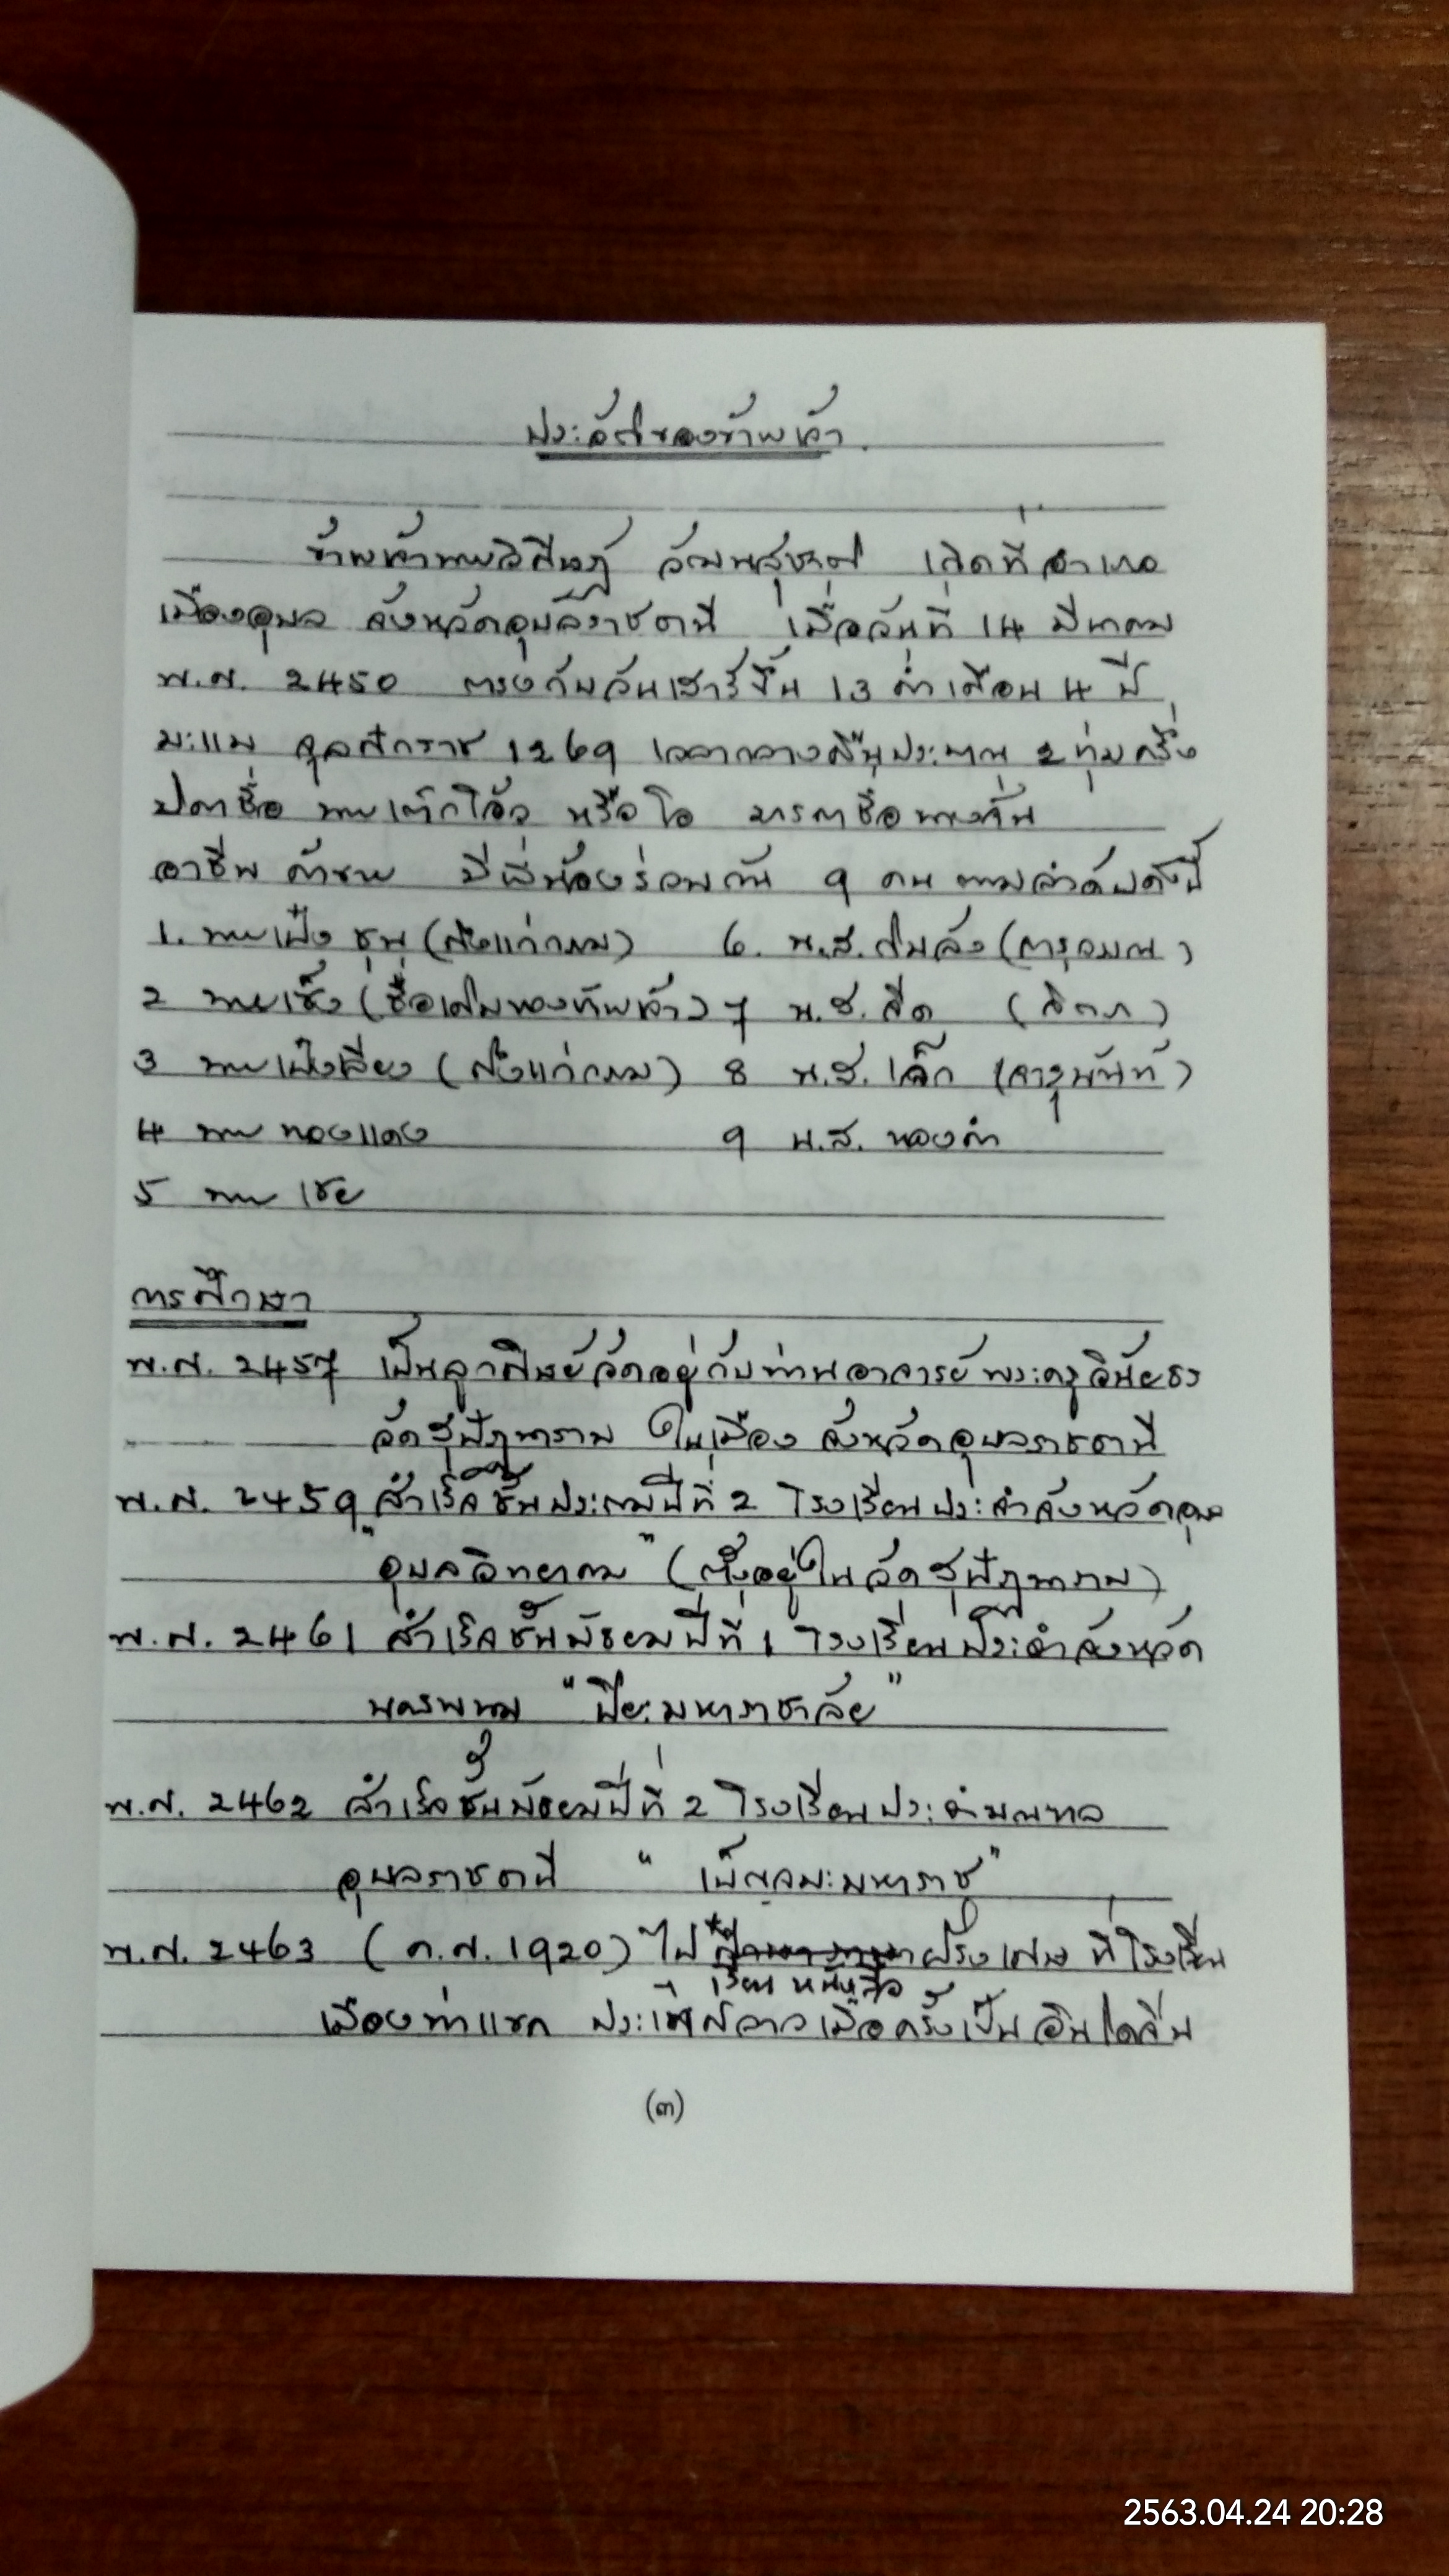 ประวัติของข้าพเจ้า.
ข้าพเจ้านายวิศิษฎ์ วัฒนสุชาติ เกิดที่อำเภอ
เมืองอุบล จังหวัดอุบลราชธานี เมื่อวันที่ 14 มีนาคม
พ.ศ. 2450 ตรงกับวันเสาร์ขึ้น 13 ค่ำ เดือน 4 ปี
มะแม จุลศักราช 1269 เวลากลางคืนประมาณ 2 ทุ่มครึ่ง
บิดาชื่อ นายเต็กโง้ว หรือโง มารดาชื่อนางจั่น
อาชีพ ค้าขาย มีพี่น้องร่วมกัน 9 คน ตามลำดับดังนี้
1. นายเป๋ง ชุน (ถึงแก่กรรม) 6. น.ส. กิมลั้ง (จารุวมณ)
2 นายเซ้ง (ชื่อเดิมของข้าพเจ้า) 7 น.ส. ลีด (ลิดา)
3 นายเป๋งเลียง (ถึงแก่กรรม) 8 น.ส. เล็ก (จารุนันท์)
4 นาย ทองแดง 9 น.ส. ทองคำ
5 นาย เชย
การศึกษา
พ.ศ. 2457 เป็นลูกศิษย์วัดอยู่กับท่านอาจารย์พระครูวินัยธร
วัดสุปัฏนาราม ในเมือง จังหวัดอุบลราชธานี
พ.ศ. 2459 สำเร็จชั้นประถมปีที่ 2 โรงเรียนประจำจังหวัดอุบล
"อุบลวิทยาคม" (ตั้งอยู่ในวัดสุปัฏนาราม)
พ.ศ. 2461 สำเร็จชั้นมัธยมปีที่ 1 โรงเรียนประจำจังหวัด
นครพนม "ปิยะมหาราชาลัย"
พ.ศ. 2462 สำเร็จชั้นมัธยมปีที่ 2 โรงเรียนประจำมณฑล
อุบลราชธานี "เบ็ญจมะมหาราช"
พ.ศ. 2463 (ค.ศ. 1920) ไปศึกษาภาษาฝรั่งเศส ที่โรงเรียน
เรียนหนังสือ
เมืองท่าแขก ประเทศลาวเมื่อครั้งเป็นอินโดจีน
(๓)
2563.04.24 20:28